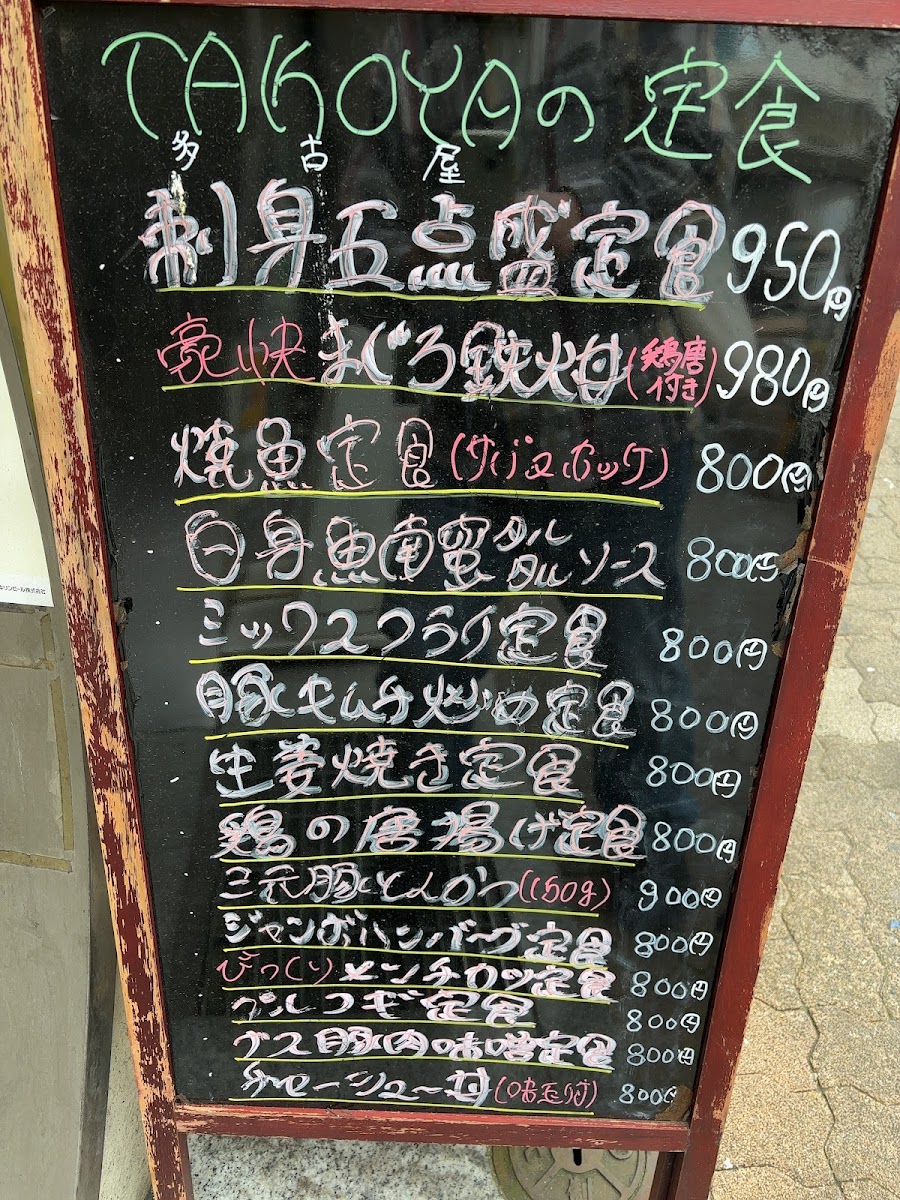 TAKOYAの定食
多古屋
刺身五点盛定食 950円
豪快まぐろ鉄火丼(鶏唐付き) 980円
焼魚定食(サバ又ホッケ) 800円
白身魚南蛮タルタルソース 800円
ミックスフライ定食 800円
豚キムチ炒め定食 800円
生姜焼き定食 800円
鶏の唐揚げ定食 800円
三元豚とんかつ(150g) 900円
ジャンボハンバーグ定食 800円
びっくりメンチカツ定食 800円
プルコギ定食 800円
ナス豚肉味噌定食 800円
チャーシュー丼(味玉付) 800円
キリンビール株式会社